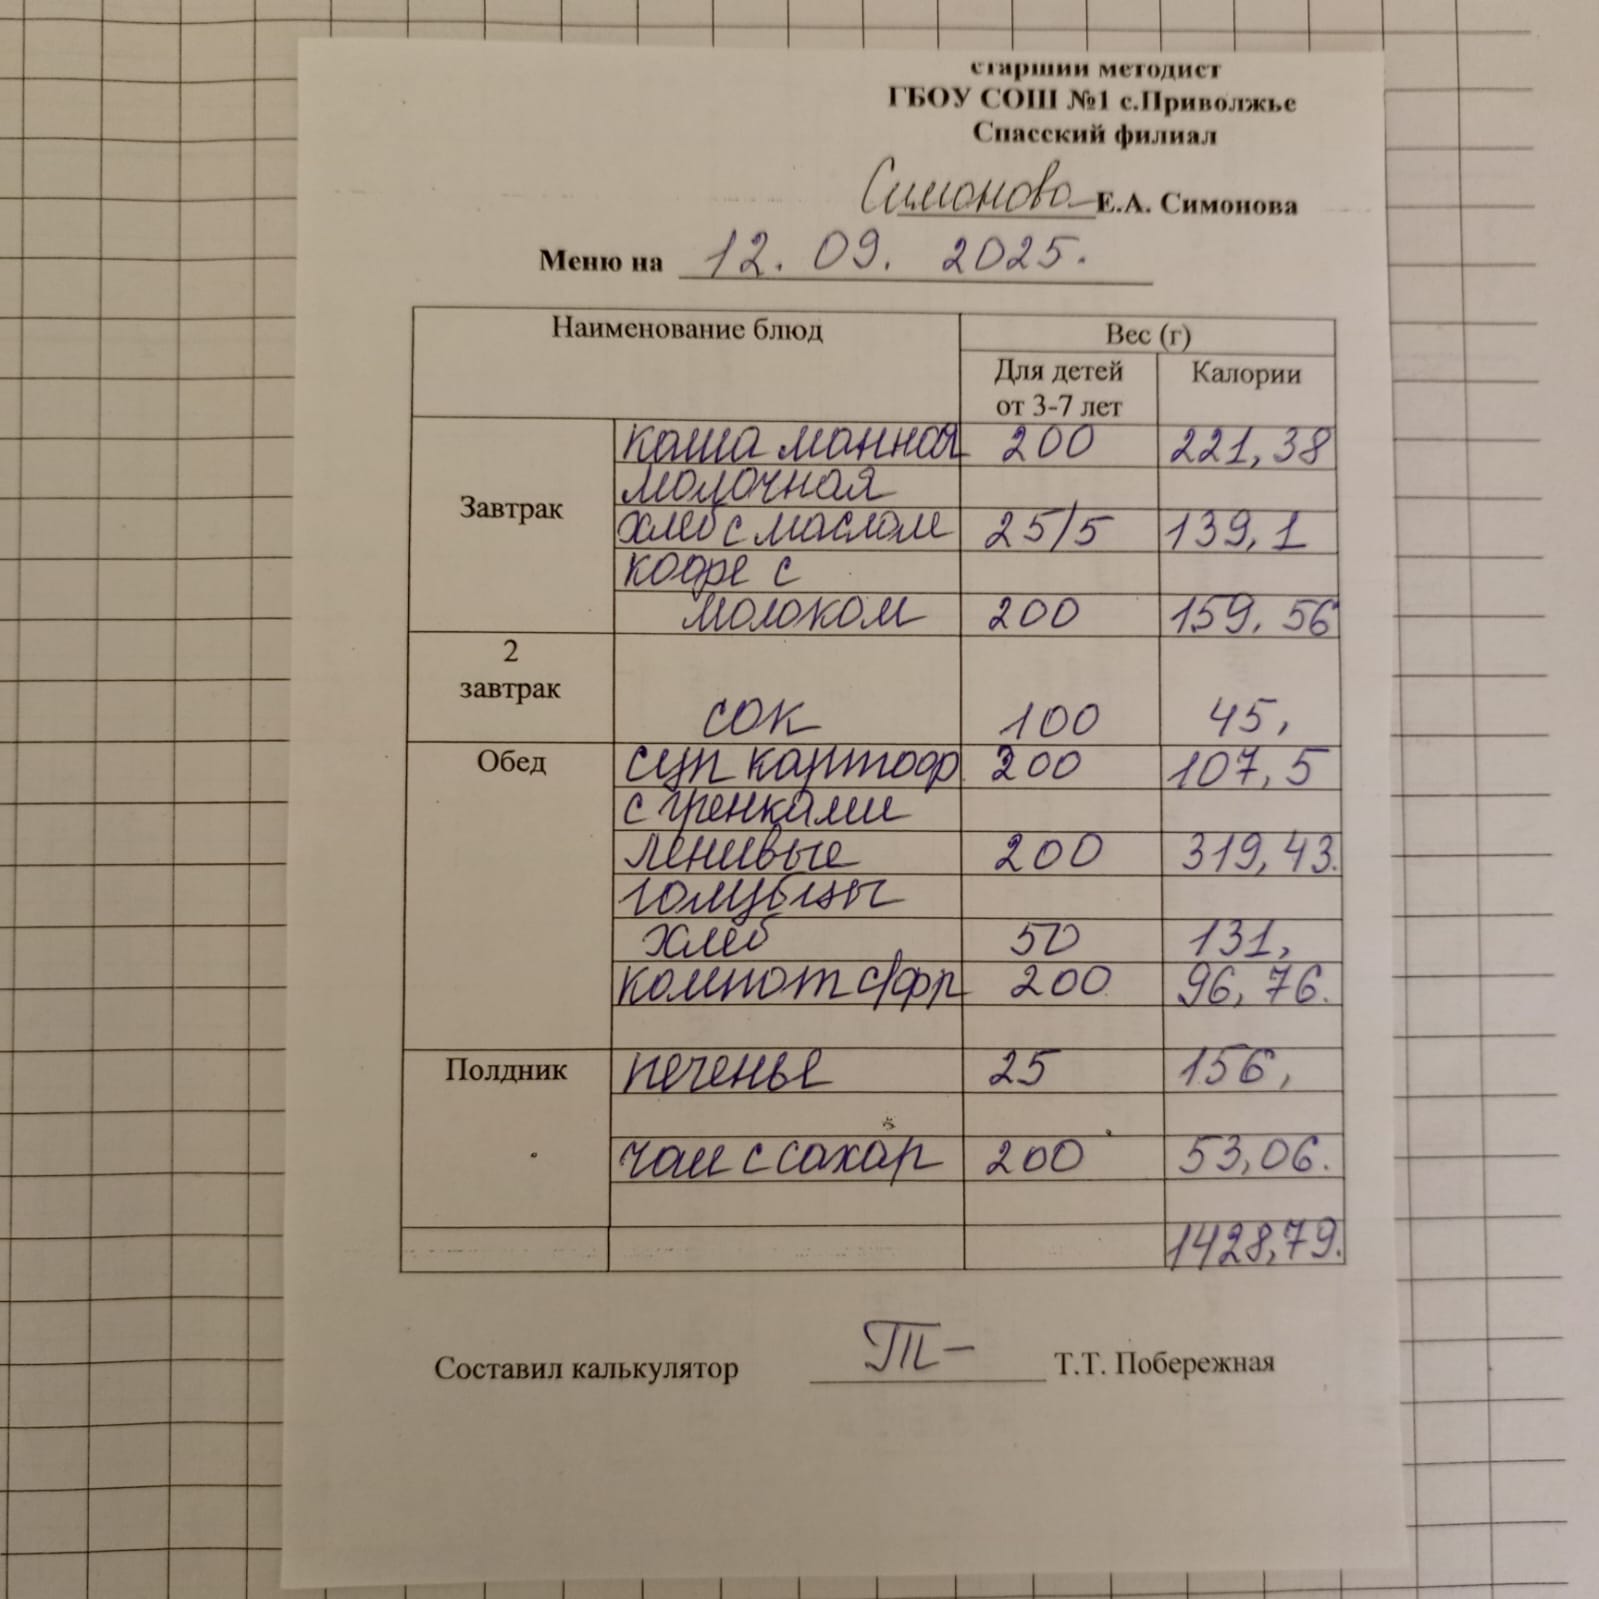 старший методист
ГБОУ СОШ №1 с.Приволжье
Спасский филиал
Симонова Е.А. Симонова
Меню на 12. 09. 2025.
Наименование блюд Вес (г)
Для детей Калории
от 3-7 лет
каша манная 200 221,38
молочная
Завтрак хлеб с маслом 25/5 139,1
кофе с
молоком 200 159,56
2
завтрак
сок 100 45,
Обед суп картоф. 200 107,5
с гренками
ленивые 200 319,43.
голубцы
хлеб 50 131,
компот с/фр 200 96,76.
Полдник печенье 25 156,
чай с сахар 200 53,06.
1428,79.
Составил калькулятор ТТ- Т.Т. Побережная